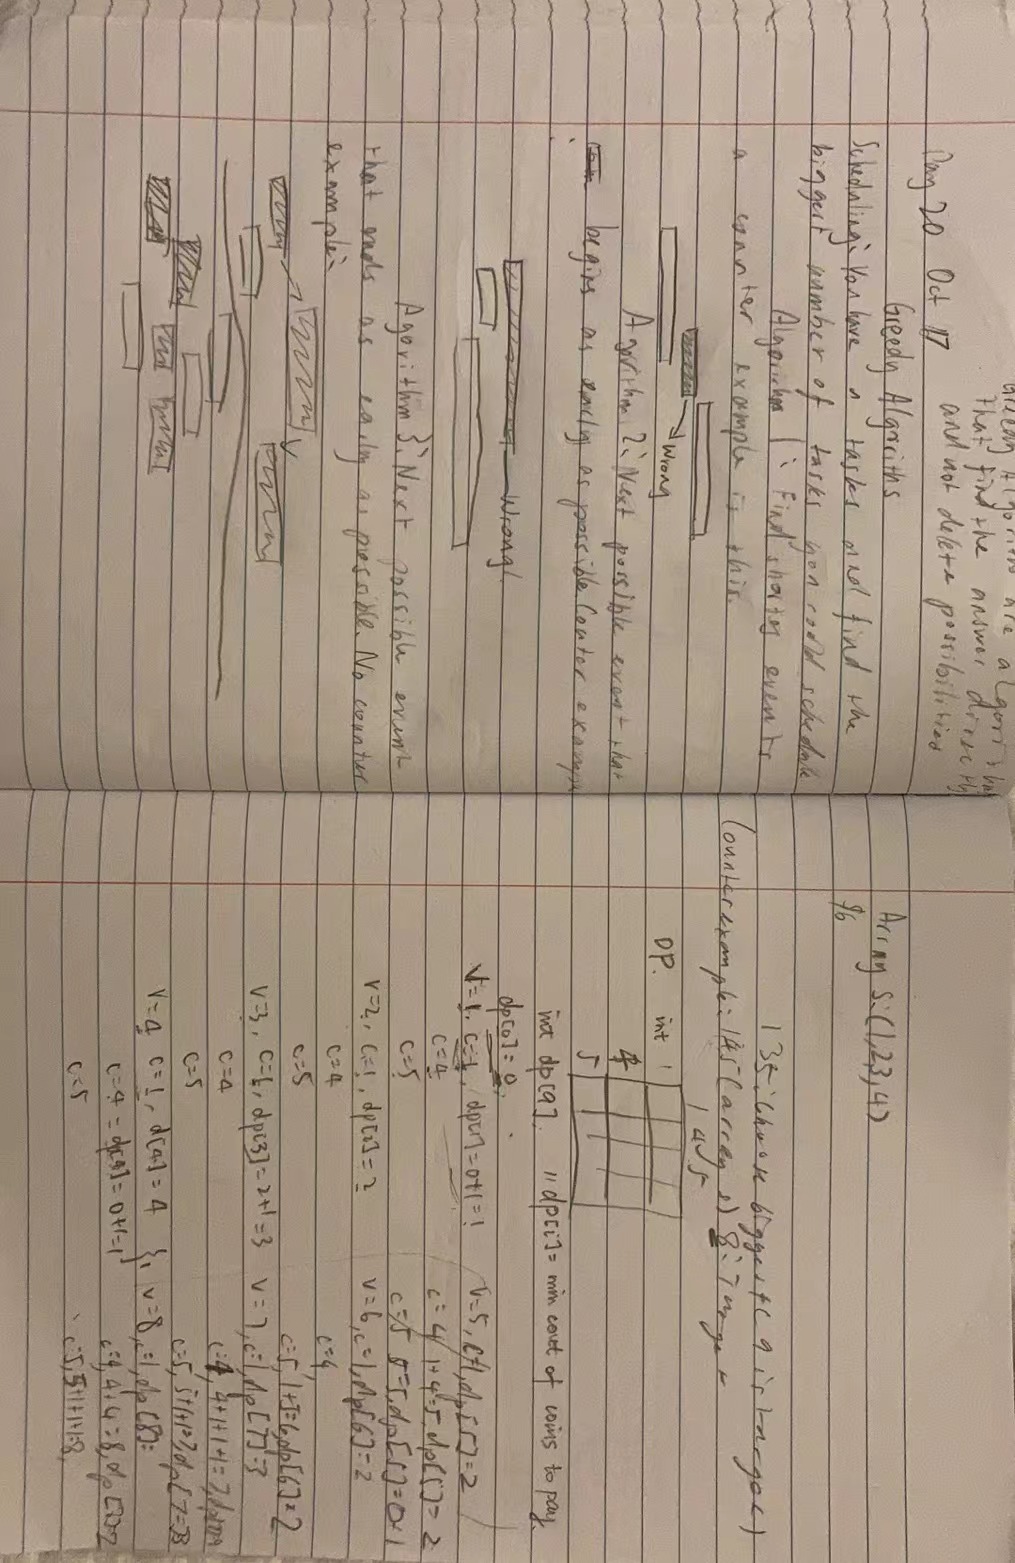 Greedy Algorithms are algorithms
that find the answer directly
and not delete possibilities
Day 20 Oct 17
Greedy Algoriths
Scheduling: You have n tasks and find the
biggest number of tasks you could schedule
Algorithm 1: Find shortes events
a counter example is this.
Wrong
Algorithm 2: Next possible event that
begins as early as possible Couter example
Wrong!
Agorithm 3: Next possible event
that ends as early as possible. No counter
example:
Array S: (1,23,4)
135: Choose biggest (9 is target)
Counterexample: 145 (array s) 8: Target
145
DP. int 1
4
5
int dp[9]. // dp[i] = min count of coins to pay
dp[0]=0,
V=1, c=1, dp[1]=0+1=1 V=5, c=1, dp[5]=2
c=4 c=4 1+4=5, dp[5]=2
c=5 c=5 5=5, dp[5]=0+1
V=2, c=1, dp[2]=2 V=6, c=1, dp[6]=2
c=4 c=4
c=5 c=5, 1+5=6, dp[6]=2
V=3, c=1, dp[3]=2+1=3 V=7, c=1, dp[7]=3
c=4 c=4, 4+1+1+1=7,
c=5 c=5, 5+1+1=7, dp[7]=3
V=4 c=1, d[4]=4 V=8, c=1, dp[8]=
c=4=dp[4]=0+1=1 c=4, 4+4=8,
c=5 c=5, 5+1+1+1=8,